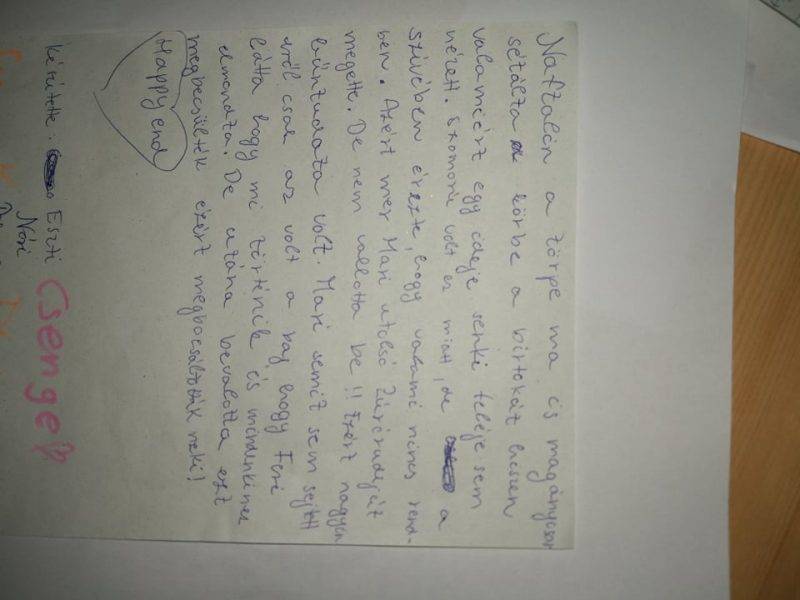 Naftalin a törpe ma is magányosan
sétálta körbe a birtokát hiszen
valamiért egy ideje senki feléje sem
nézett. Szomorú volt ez miatt, de a
szívében érezte, hogy valami nincs rend-
ben. Azért mer Mari utolsó Túrórudiját
megette. De nem vallotta be!! Ezért nagyon
bűntudata volt. Mari semit sem sejtett
erről csak az volt a baj hogy Feri
látta hogy mi történik és mindenkinek
elmondta. De utána bevalotta ezt
megbecsülték ezért megbocsátották neki!
Happy end
készítette: Eszti
Nóri
Csenge